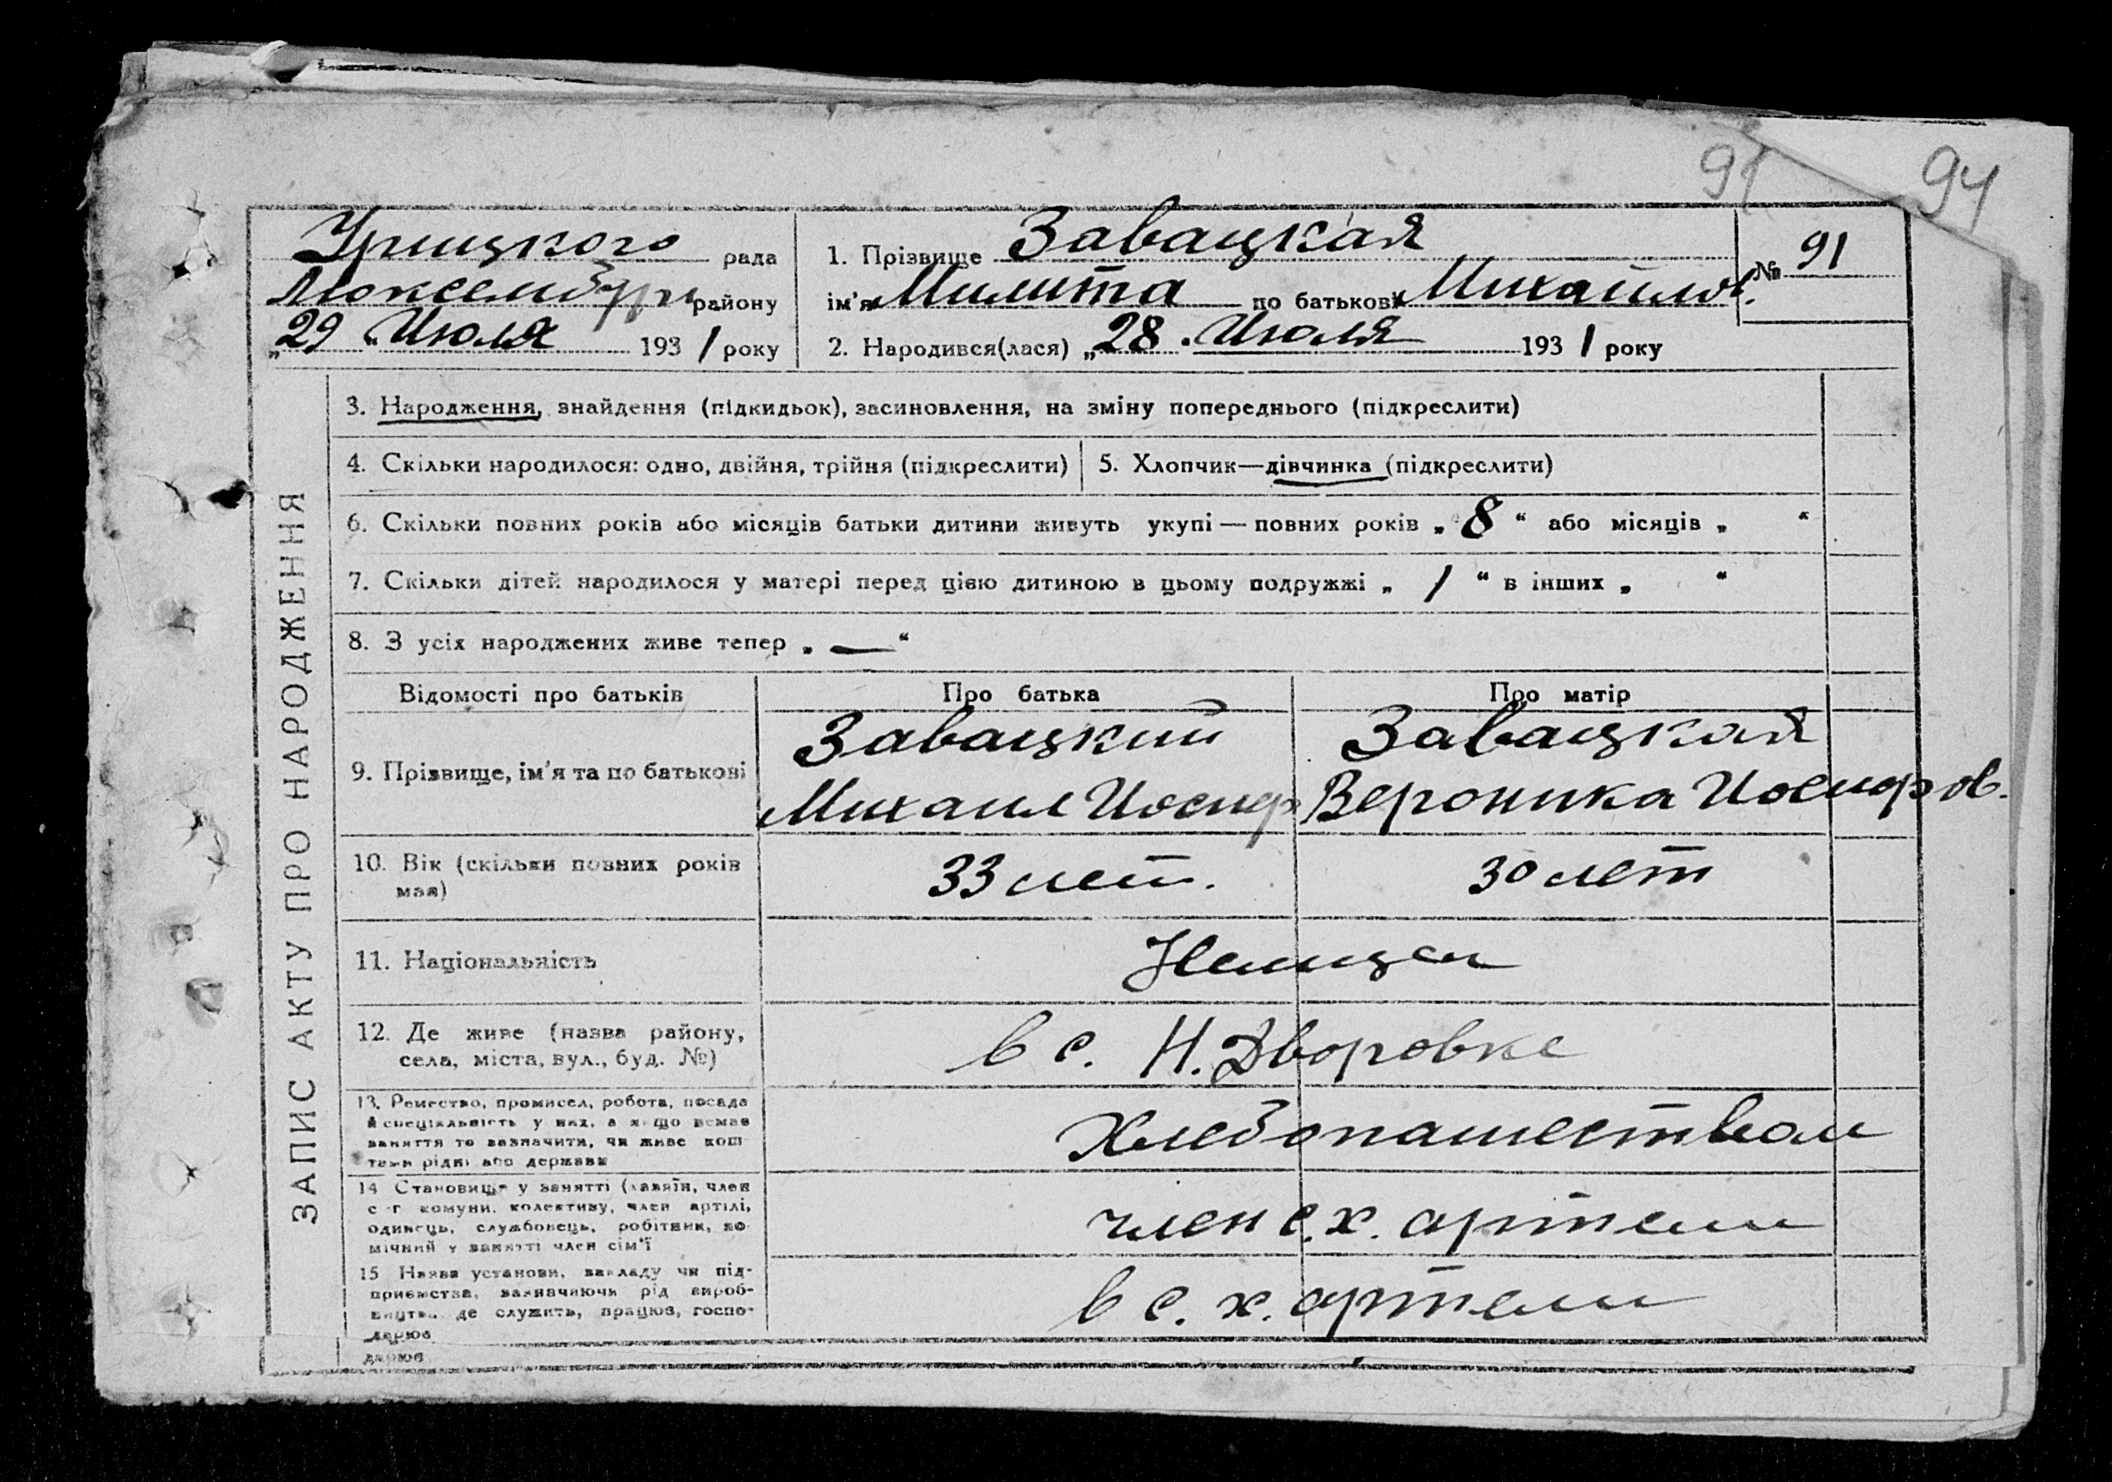 91 94
Урицкого рада
Люксембург району
„29" Июля 1931 року
1. Прізвище Завацкая
ім'я Милита по батькові Михайлов.
№ 91
2. Народився(лася) „28" Июля 1931 року
ЗАПИС АКТУ ПРО НАРОДЖЕННЯ
3. Народження, знайдення (підкидьок), засиновлення, на зміну попереднього (підкреслити)
4. Скільки народилося: одно, двійня, трійня (підкреслити) 5. Хлопчик—дівчинка (підкреслити)
6. Скільки повних років або місяців батьки дитини живуть укупі — повних років „8“ або місяців „ “
7. Скільки дітей народилося у матері перед цією дитиною в цьому подружжі „1“ в інших „ “
8. З усіх народжених живе тепер „—“
Відомості про батьків Про батька Про матір
9. Прізвище, ім'я та по батькові
Завацкий
Михаил Иосиф
Завацкая
Вероника Иосифов.
10. Вік (скільки повних років
має)
33 лет. 30 лет
11. Національність Немцы
12. Де живе (назва району,
села, міста, вул., буд. №)
в с. Н. Дворовке
13. Ремество, промисел, робота, посада
й спеціяльність у них, а якщо немає
заняття то зазначити, чи живе кош
тами рідні або держави
Хлебопашеством
14 Становище у занятті (хазяїн, член
с-г комуни, колективу, член артілі,
одинець, службовець, робітник, по
мічний у занятті член сім'ї
член с.х. артели
15 Назва установи, закладу чи під-
приємства, зазначаючи рід вироб-
ництва де служить, працює, госпо-
дарює
в с.х. артели
дарює